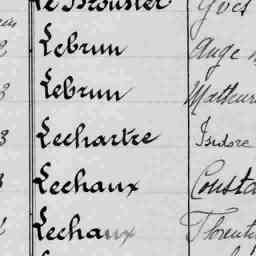 Le Brouster Yves
Lebrun Ange
Lebrun Mathur
3 Lechartre Isidore
Lechaux Consta
Lechaux Florent